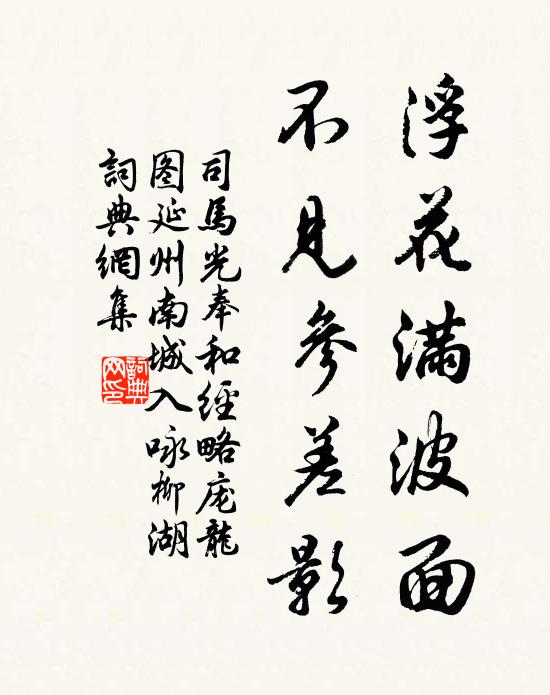 浮花满波面
不见参差影
司馬光奉和經略庞龍
图延州南城入咏柳湖
詞典網集
詞典
网印